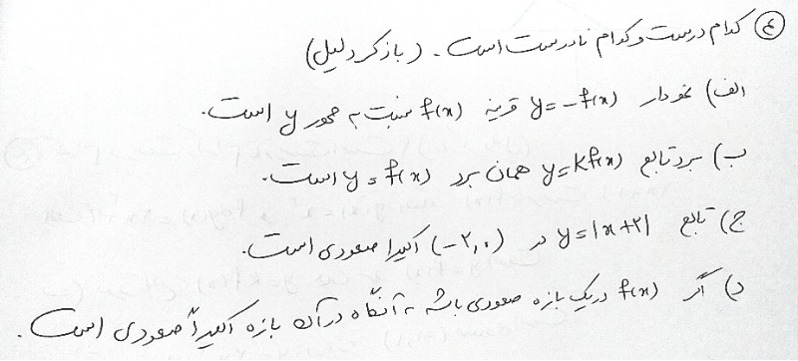 ۴) کدام درست و کدام نادرست است. (با ذکر دلیل)
الف) نمودار y=-f(x) قرینه f(x) نسبت به محور y است.
ب) برد تابع y=kf(x) همان برد y=f(x) است.
ج) تابع y=|x+۲| در (-۲,۰) اکیدا صعودی است.
د) اگر f(x) در یک بازه صعودی باشد، آنگاه در آن بازه اکیداً صعودی است.